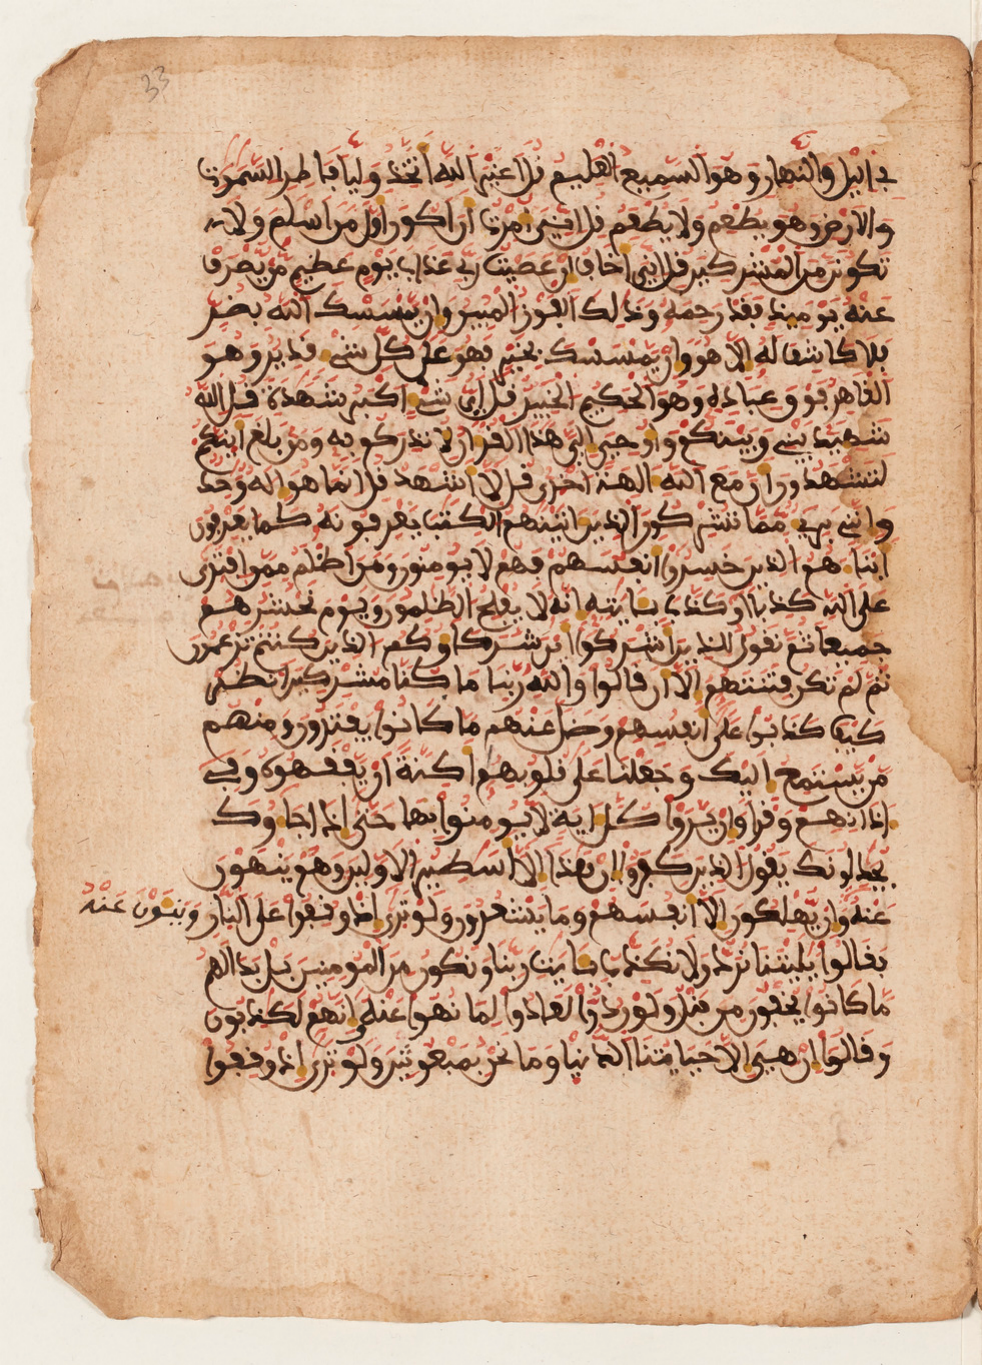 33
في اليل والنهار وهو السميع العليم قل اغير الله اتخذ وليا فاطر السموت
والارض وهو يطعم ولا يطعم قل اني امرت ان اكون اول من اسلم ولا
تكونن من المشركين قل اني اخاف ان عصيت ربي عذاب يوم عظيم من يصرف
عنه يوميذ فقد رحمه وذلك الفوز المبين وان يمسسك الله بضر
فلا كاشف له الا هو وان يمسسك بخير فهو على كل شيء قدير وهو
القاهر فوق عباده وهو الحكيم الخبير قل اي شيء اكبر شهدة قل الله
شهيد بيني وبينكم واوحي الي هذا القران لانذركم به ومن بلغ اينكم
لتشهدون ان مع الله الهة اخرى قل لا اشهد قل انما هو اله وحد
وانني بريء مما تشركون الذين اتينهم الكتب يعرفونه كما يعرفون
ابناءهم الذين خسروا انفسهم فهم لا يومنون ومن اظلم ممن افترى
على الله كذبا او كذب بايته انه لا يفلح الظلمون ويوم نحشرهم
جميعا ثم نقول للذين اشركوا اين شركاوكم الذين كنتم تزعمون
ثم لم تكن فتنتهم الا ان قالوا والله ربنا ما كنا مشركين انظر
كيف كذبوا على انفسهم وضل عنهم ما كانوا يفترون ومنهم
من يستمع اليك وجعلنا على قلوبهم اكنة ان يفقهوه وفي
اذانهم وقرا وان يروا كل اية لا يومنوا بها حتى اذا جاوك
يجدلونك يقول الذين كفروا ان هذا الا اسطير الاولين وهم ينهون
عنه وان يهلكون الا انفسهم وما يشعرون ولو ترى اذ وقفوا على النار
وينئون عنه
فقالوا يليتنا نرد ولا نكذب بايت ربنا ونكون من المومنين بل بدا لهم
ما كانوا يخفون من قبل ولو ردوا لعادوا لما نهوا عنه وانهم لكذبون
وقالوا ان هي الا حياتنا الدنيا وما نحن بمبعوثين ولو ترى اذ وقفوا